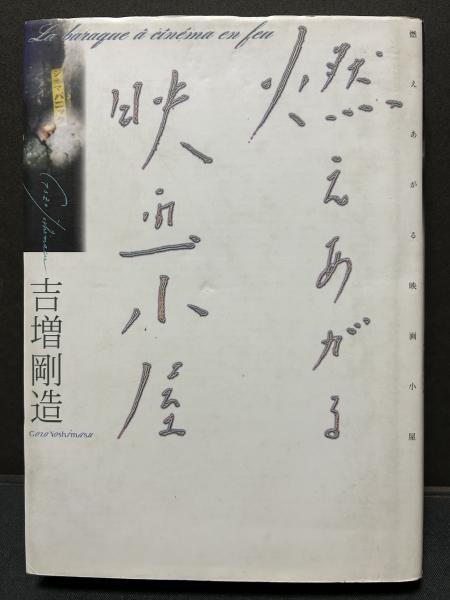 La baraque à cinéma en feu
燃えあがる
映画小屋
Gozo Yoshimasu
吉増剛造
Gozo Yoshimasu
燃えあがる映画小屋